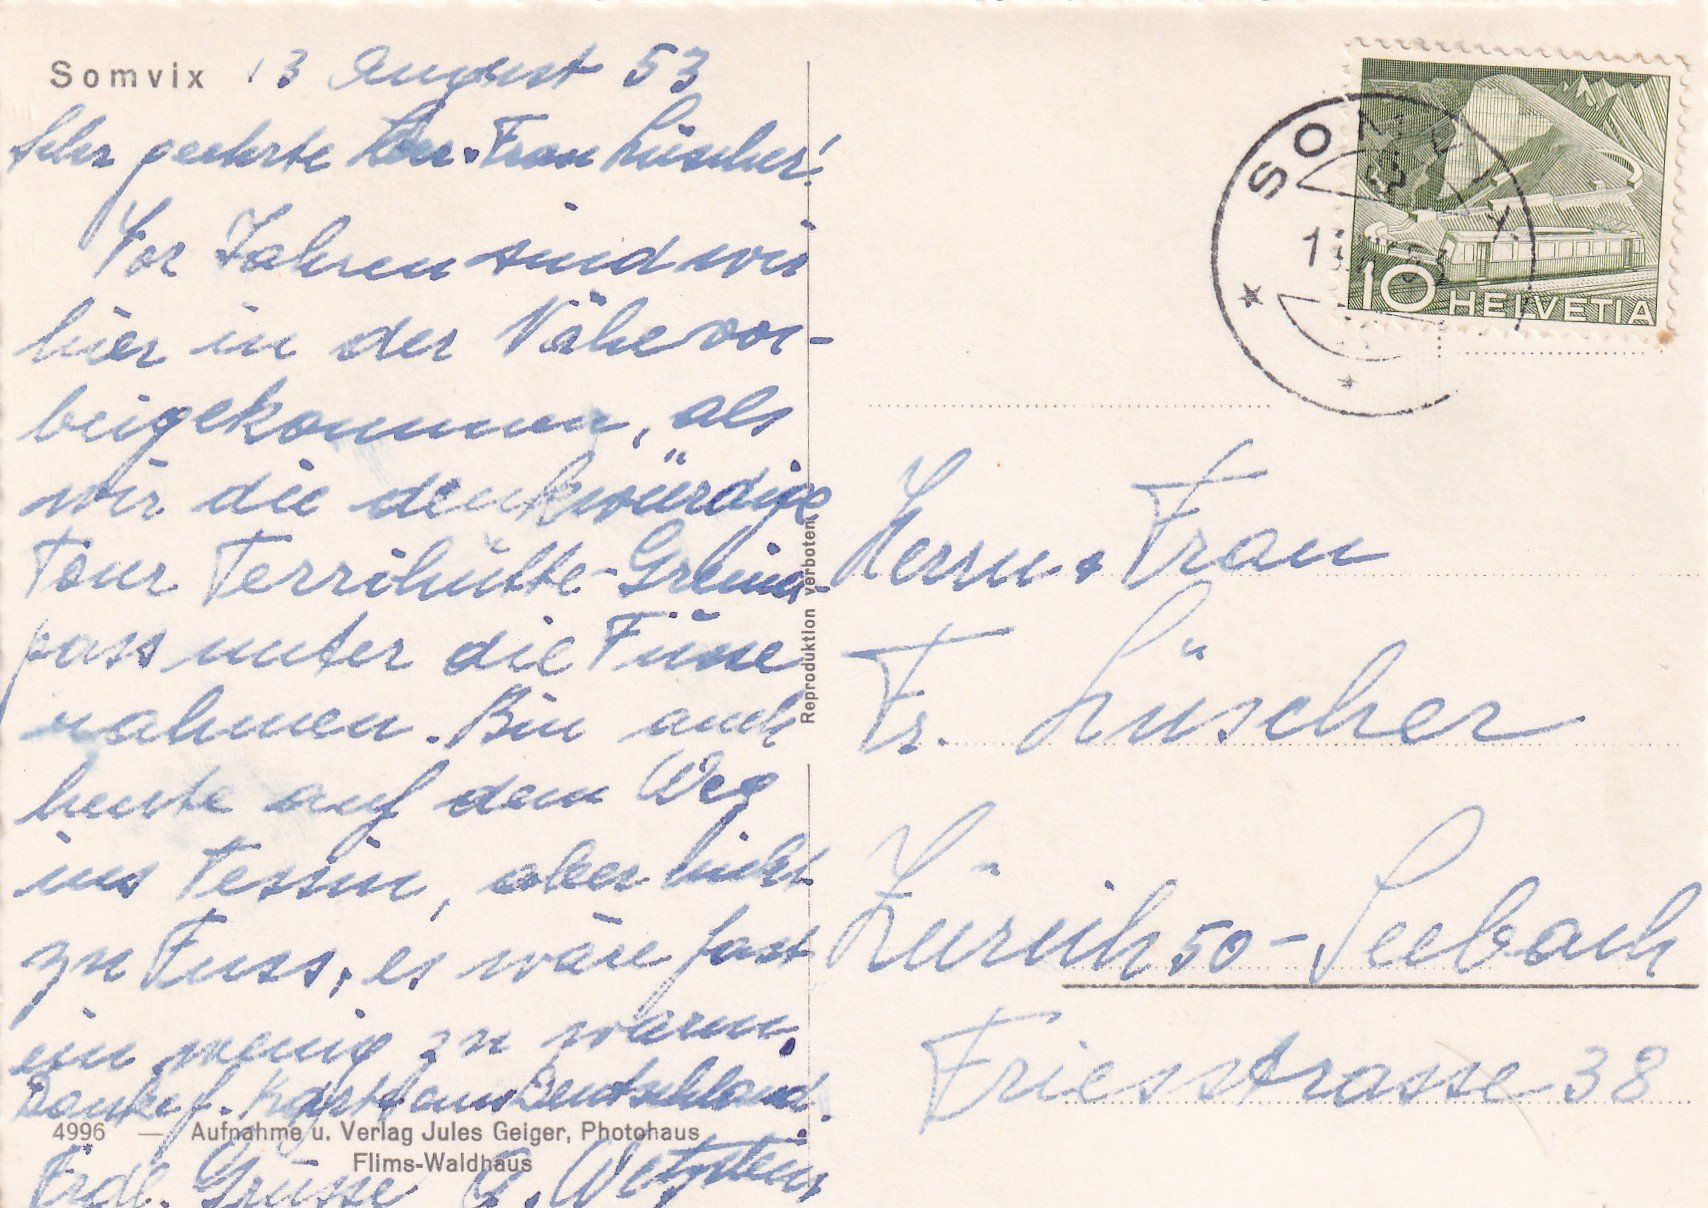 Somvix 13 August 53
Sehr geehrte Herr. Frau Lüscher!
Vor Jahren sind wir
hier in der Nähe vor-
beigekommen, als
wir die denkwürdige
Tour Terrihütte-Greina-
pass unter die Füsse
nahmen. Bin auch
heute auf dem Weg
ins Tessin, aber nicht
zu Fuss, es wäre fast
ein wenig zu warm.
Danke f. Karte aus Deutschland.
4996 — Aufnahme u. Verlag Jules Geiger, Photohaus
Flims-Waldhaus
Frdl. Grüsse Wetzstein
Reproduktion verboten
SOMVIX
10 HELVETIA
Herrn & Frau
Fr. Lüscher
Zürich 50 - Seebach
Friesstrasse 38